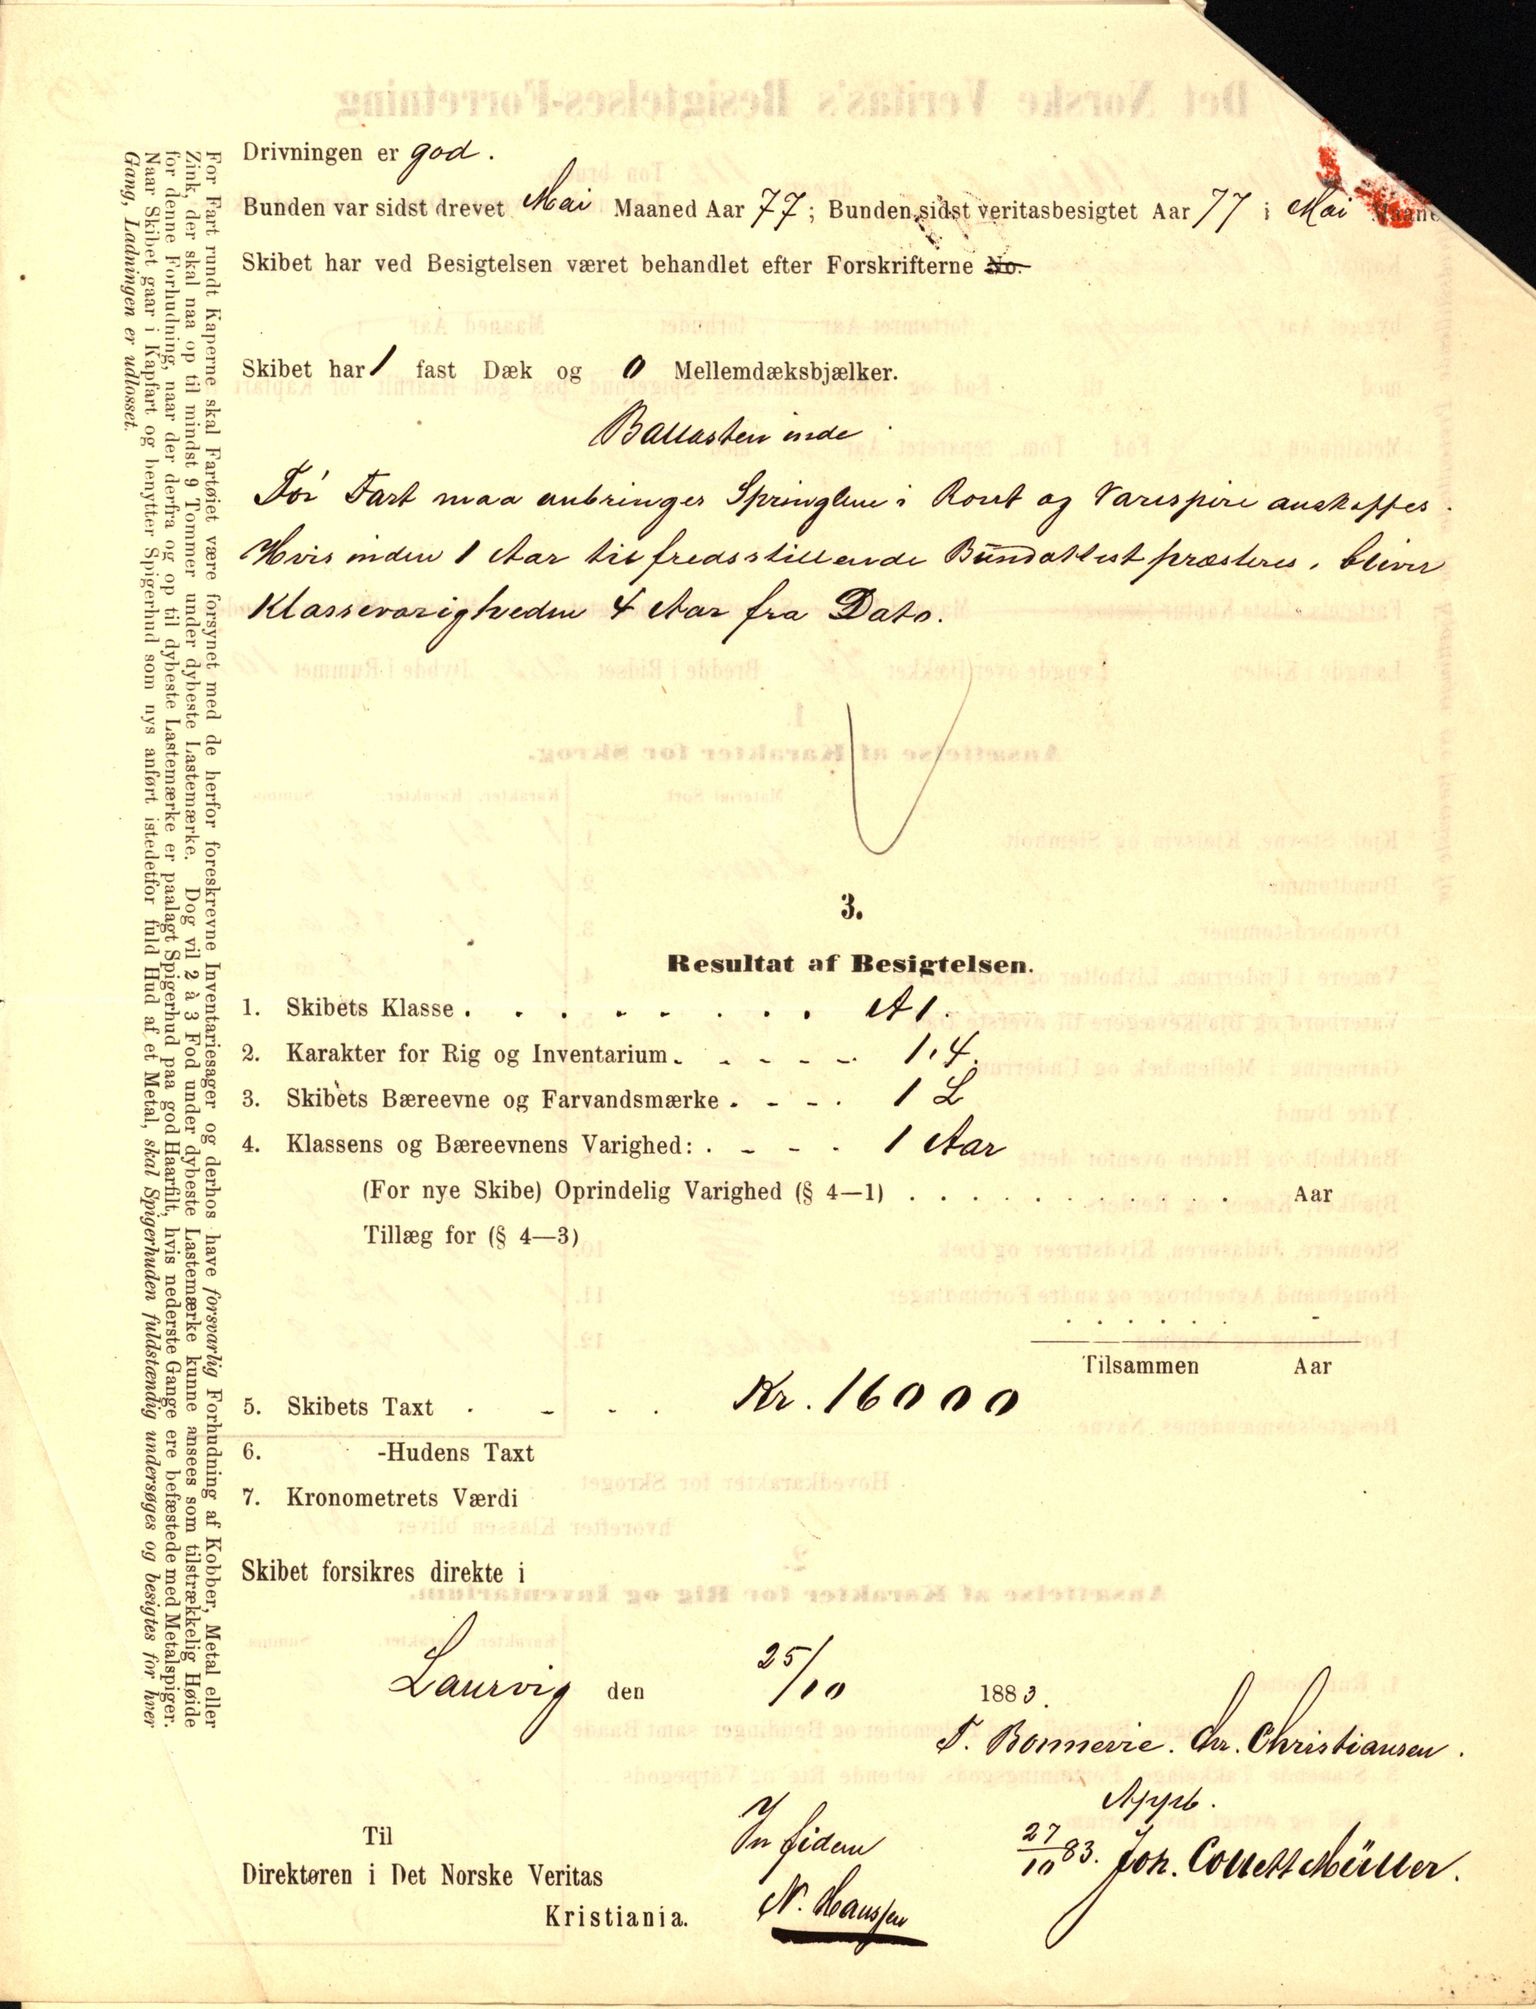 Drivningen er god.
Bunden var sidst drevet Mai Maaned Aar 77; Bunden sidst veritasbesigtet Aar 77 i Mai Maane
Skibet har ved Besigtelsen været behandlet efter Forskrifterne No.
Skibet har 1 fast Dæk og 0 Mellemdæksbjælker.
Ballasten inde.
För Fart maa anbringes i Roret og Varespire anskaffes.
Hvis inden 1 Aar tilfredsstillende Bundattest præsteres, bliver
Klassevarigheden 4 Aar fra Dato.
3.
Resultat af Besigtelsen.
1. Skibets Klasse . . . . . . . . A1.
2. Karakter for Rig og Inventarium . - - - - 1.4.
3. Skibets Bæreevne og Farvandsmærke . - - . 1 L
4. Klassens og Bæreevnens Varighed: . - - . 1 Aar
(For nye Skibe) Oprindelig Varighed (§ 4—1) . . . . . . . . . . . Aar
Tillæg for (§ 4—3)
Tilsammen Aar
5. Skibets Taxt . - - . Kr. 16000
6. -Hudens Taxt
7. Kronometrets Værdi
Skibet forsikres direkte i
Laurvig den 25/10 1883.
T. Bonnevie. Chr. Christiansen.
App.
27/10 83. Joh. Collett Müller.
In fidem
N. Hanssen
Til
Direktøren i Det Norske Veritas
Kristiania.
For Fart rundt Kaperne skal Fartøiet være forsynet med de herfor foreskrevne Inventariesager og derhos have forsvarlig Forhudning af Kobber, Metal eller
Zink, der skal naa op til mindst 9 Tommer under dybeste Lastemærke. Dog vil 2 à 3 Fod under dybeste Lastemærke kunne ansees som tilstrækkelig Høide
for denne Forhudning, naar der derfra og op til dybeste Lastemærke er paalagt Spigerhud paa god Haarfilt, hvis nederste Gange ere befæstede med Metalspiger.
Naar Skibet gaar i Kapfart og benytter Spigerhud som nys anført istedetfor fuld Hud af et Metal, skal Spigerhuden fuldstændig undersøges og besigtes for hver
Gang, Ladningen er udlosset.